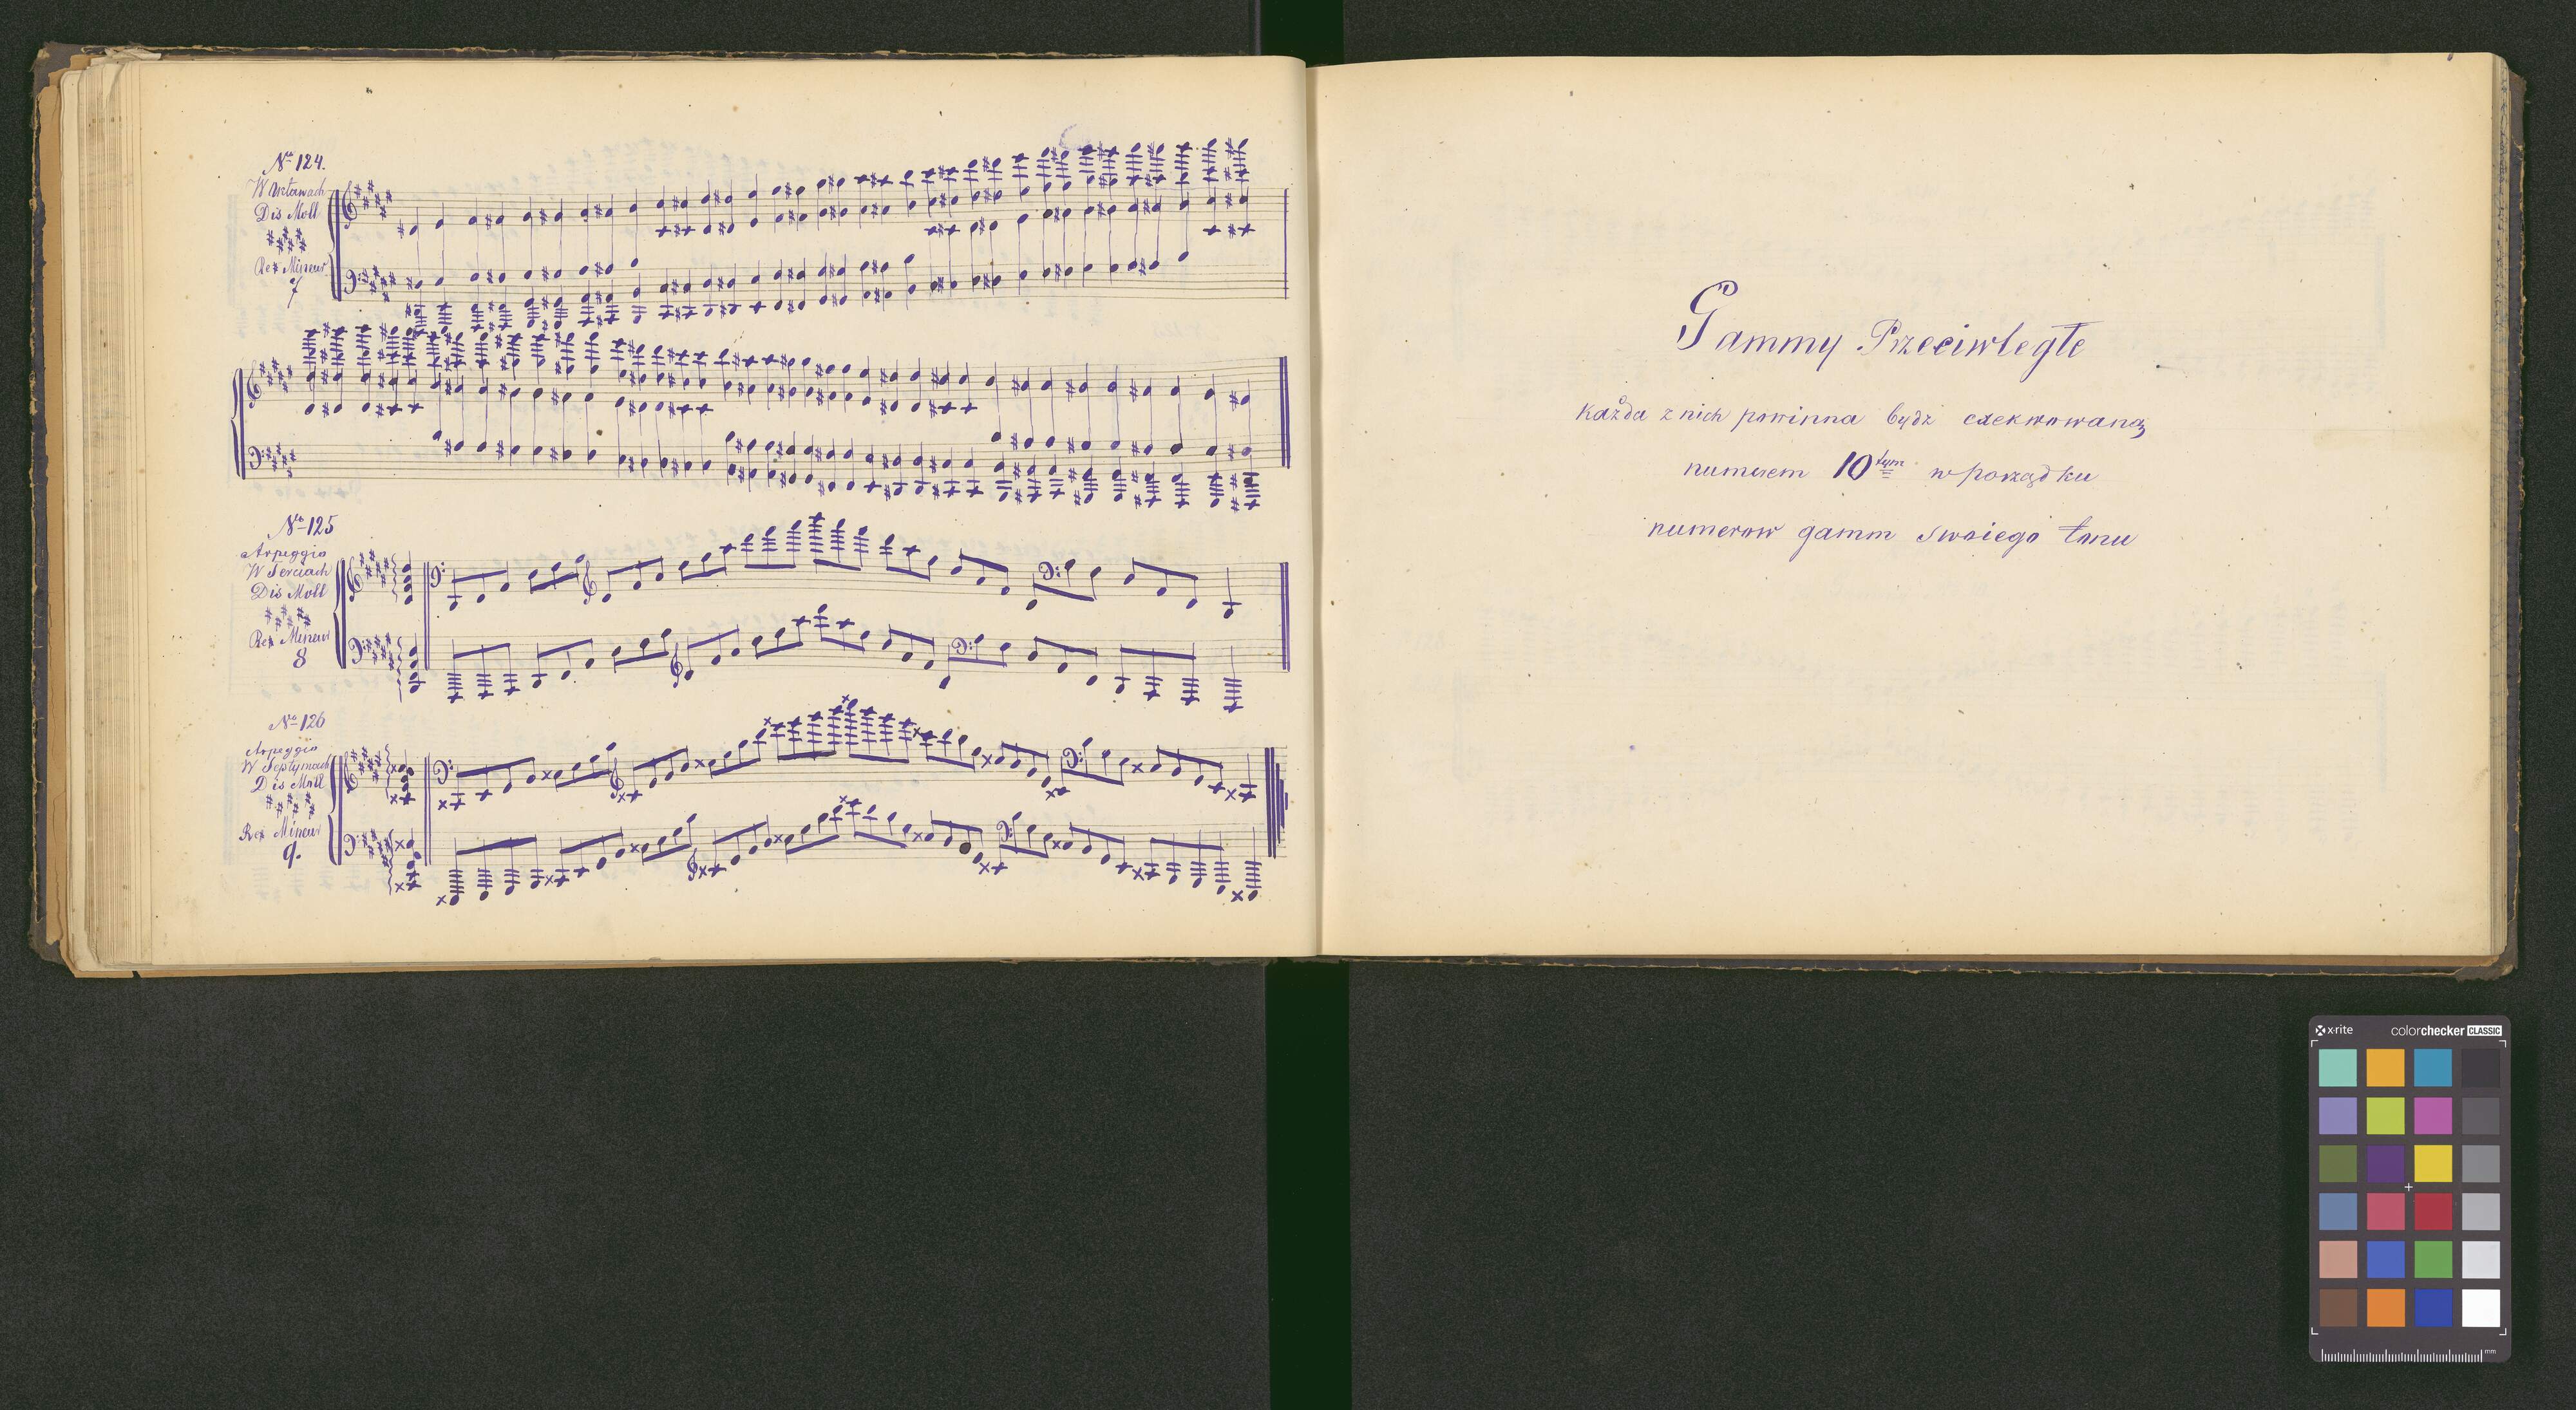 Nº 124.
W Oktawach
Dis Moll
Re# Mineur
7
Nº 125
Arpeggio
W Terciach
Dis Moll
Re# Mineur
8
Nº 126
Arpeggio
W Septymach
Dis Moll
Re# Mineur
9.
Gammy Przeciwległe
każda z nich powinna bydź exekwowaną
numerem 10tym w porządku
numerow gamm swoiego tonu
x·rite colorchecker CLASSIC
mm